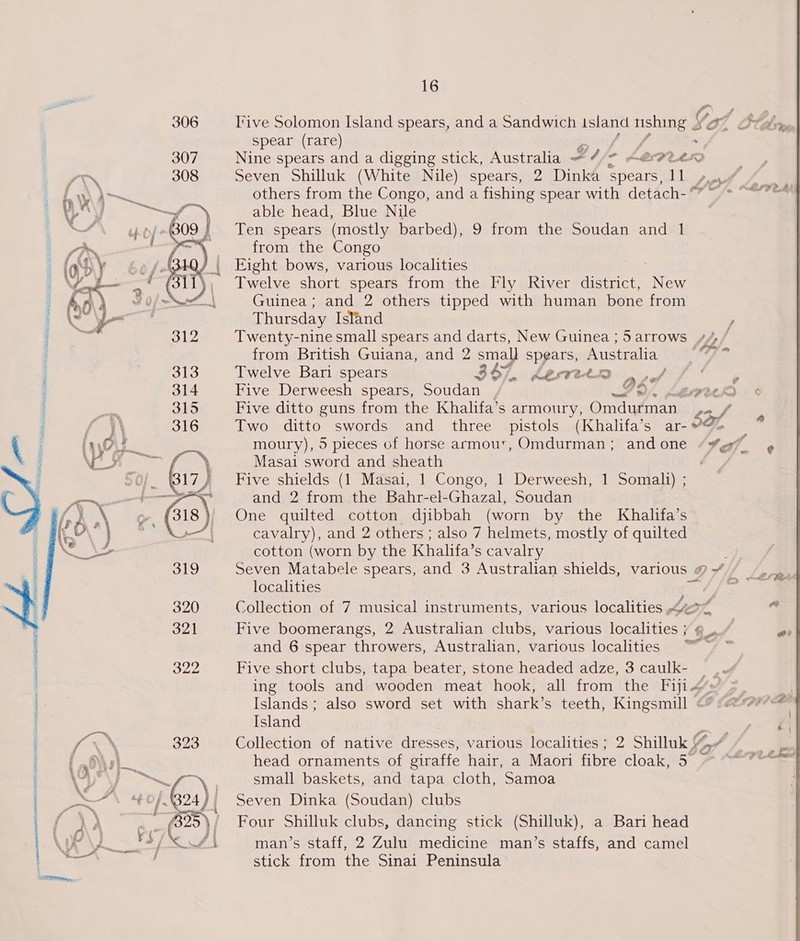 16
306 Five Solomon Island spears, and a Sandwich island fishing
spear (rare)
307 Nine spears and a digging stick, Australia
308 Seven Shilluk (White Nile) spears, 2 Dinka spears, 11
others from the Congo, and a fishing spear with detach-
able head, Blue Nile
309 Ten spears (mostly barbed), 9 from the Soudan and 1
from the Congo
310 Eight bows, various localities
311 Twelve short spears from the Fly River district, New
Guinea; and 2 others tipped with human bone from
Thursday Island
312 Twenty-nine small spears and darts, New Guinea; 5 arrows
from British Guiana, and 2 small spears, Australia
313 Twelve Bari spears
314 Five Derweesh spears, Soudan
315 Five ditto guns from the Khalifa's armoury, Omdurman
316 Two ditto swords and three pistols (Khalifa's ar-
moury), 5 pieces of horse armour, Omdurman; and one
Masai sword and sheath
317 Five shields (1 Masai, 1 Congo, 1 Derweesh, 1 Somali);
and 2 from the Bahr-el-Ghazal, Soudan
318 One quilted cotton djibbah (worn by the Khalifa's
cavalry), and 2 others; also 7 helmets, mostly of quilted
cotton (worn by the Khalifa's cavalry
319 Seven Matabele spears, and 3 Australian shields, various
localities
320 Collection of 7 musical instruments, various localities
321 Five boomerangs, 2 Australian clubs, various localities;
and 6 spear throwers, Australian, various localities
322 Five short clubs, tapa beater, stone headed adze, 3 caulk-
ing tools and wooden meat hook, all from the Fiji
Islands; also sword set with shark's teeth, Kingsmill
Island
323 Collection of native dresses, various localities; 2 Shilluk
head ornaments of giraffe hair, a Maori fibre cloak, 5
small baskets, and tapa cloth, Samoa
324 Seven Dinka (Soudan) clubs
325 Four Shilluk clubs, dancing stick (Shilluk), a Bari head
man's staff, 2 Zulu medicine man's staffs, and camel
stick from the Sinai Peninsula